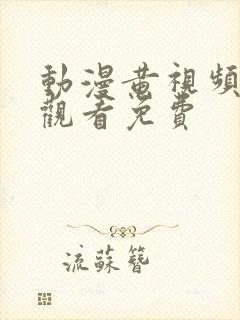 動漫黃視頻
觀看免費
流蘇簪